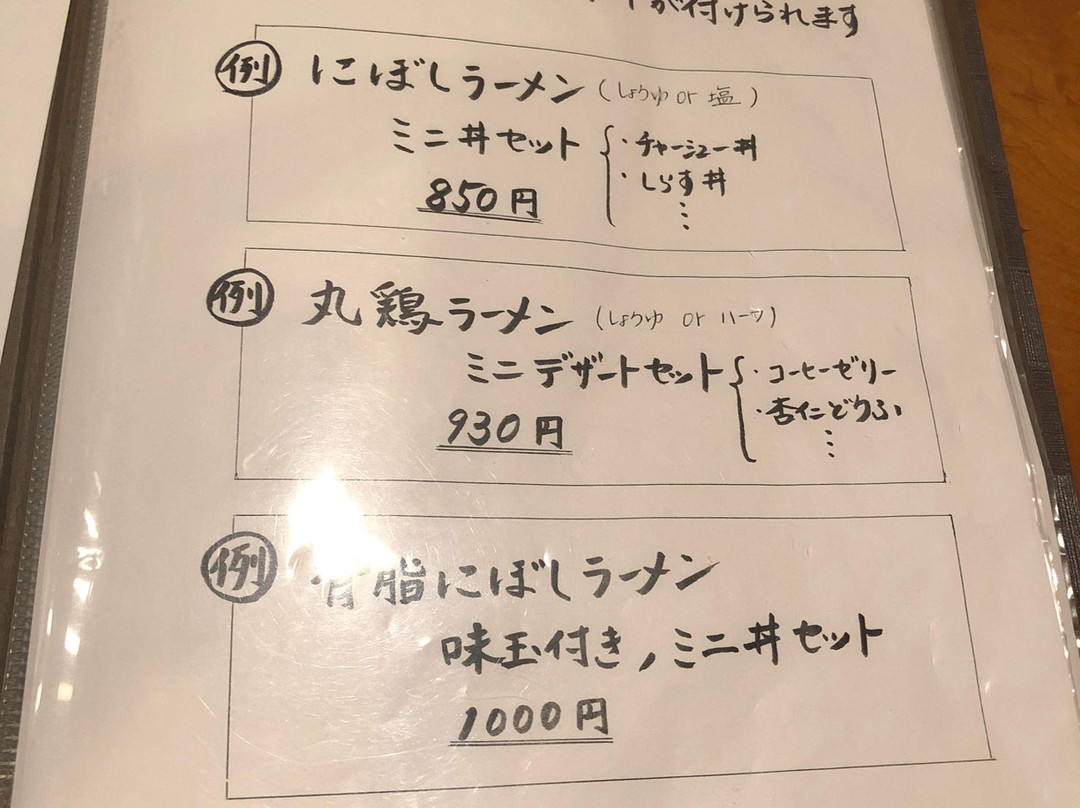 が付けられます
例 にぼしラーメン (しょうゆ or 塩)
ミニ丼セット
・チャーシュー丼
・しらす丼
⋮
850円
例 丸鶏ラーメン (しょうゆ or ハーフ)
ミニデザートセット
・コーヒーゼリー
・杏仁どうふ
⋮
930円
例 背脂にぼしラーメン
味玉付き,ミニ丼セット
1000円